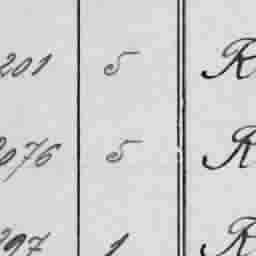 201 5 R
2076 5 R
297 1 R